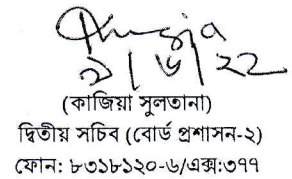 ৯/৬/২২
(কাজিয়া সুলতানা)
দ্বিতীয় সচিব (বোর্ড প্রশাসন-২)
ফোন: ৮৩১৮১২০-৬/এক্স:৩৭৭